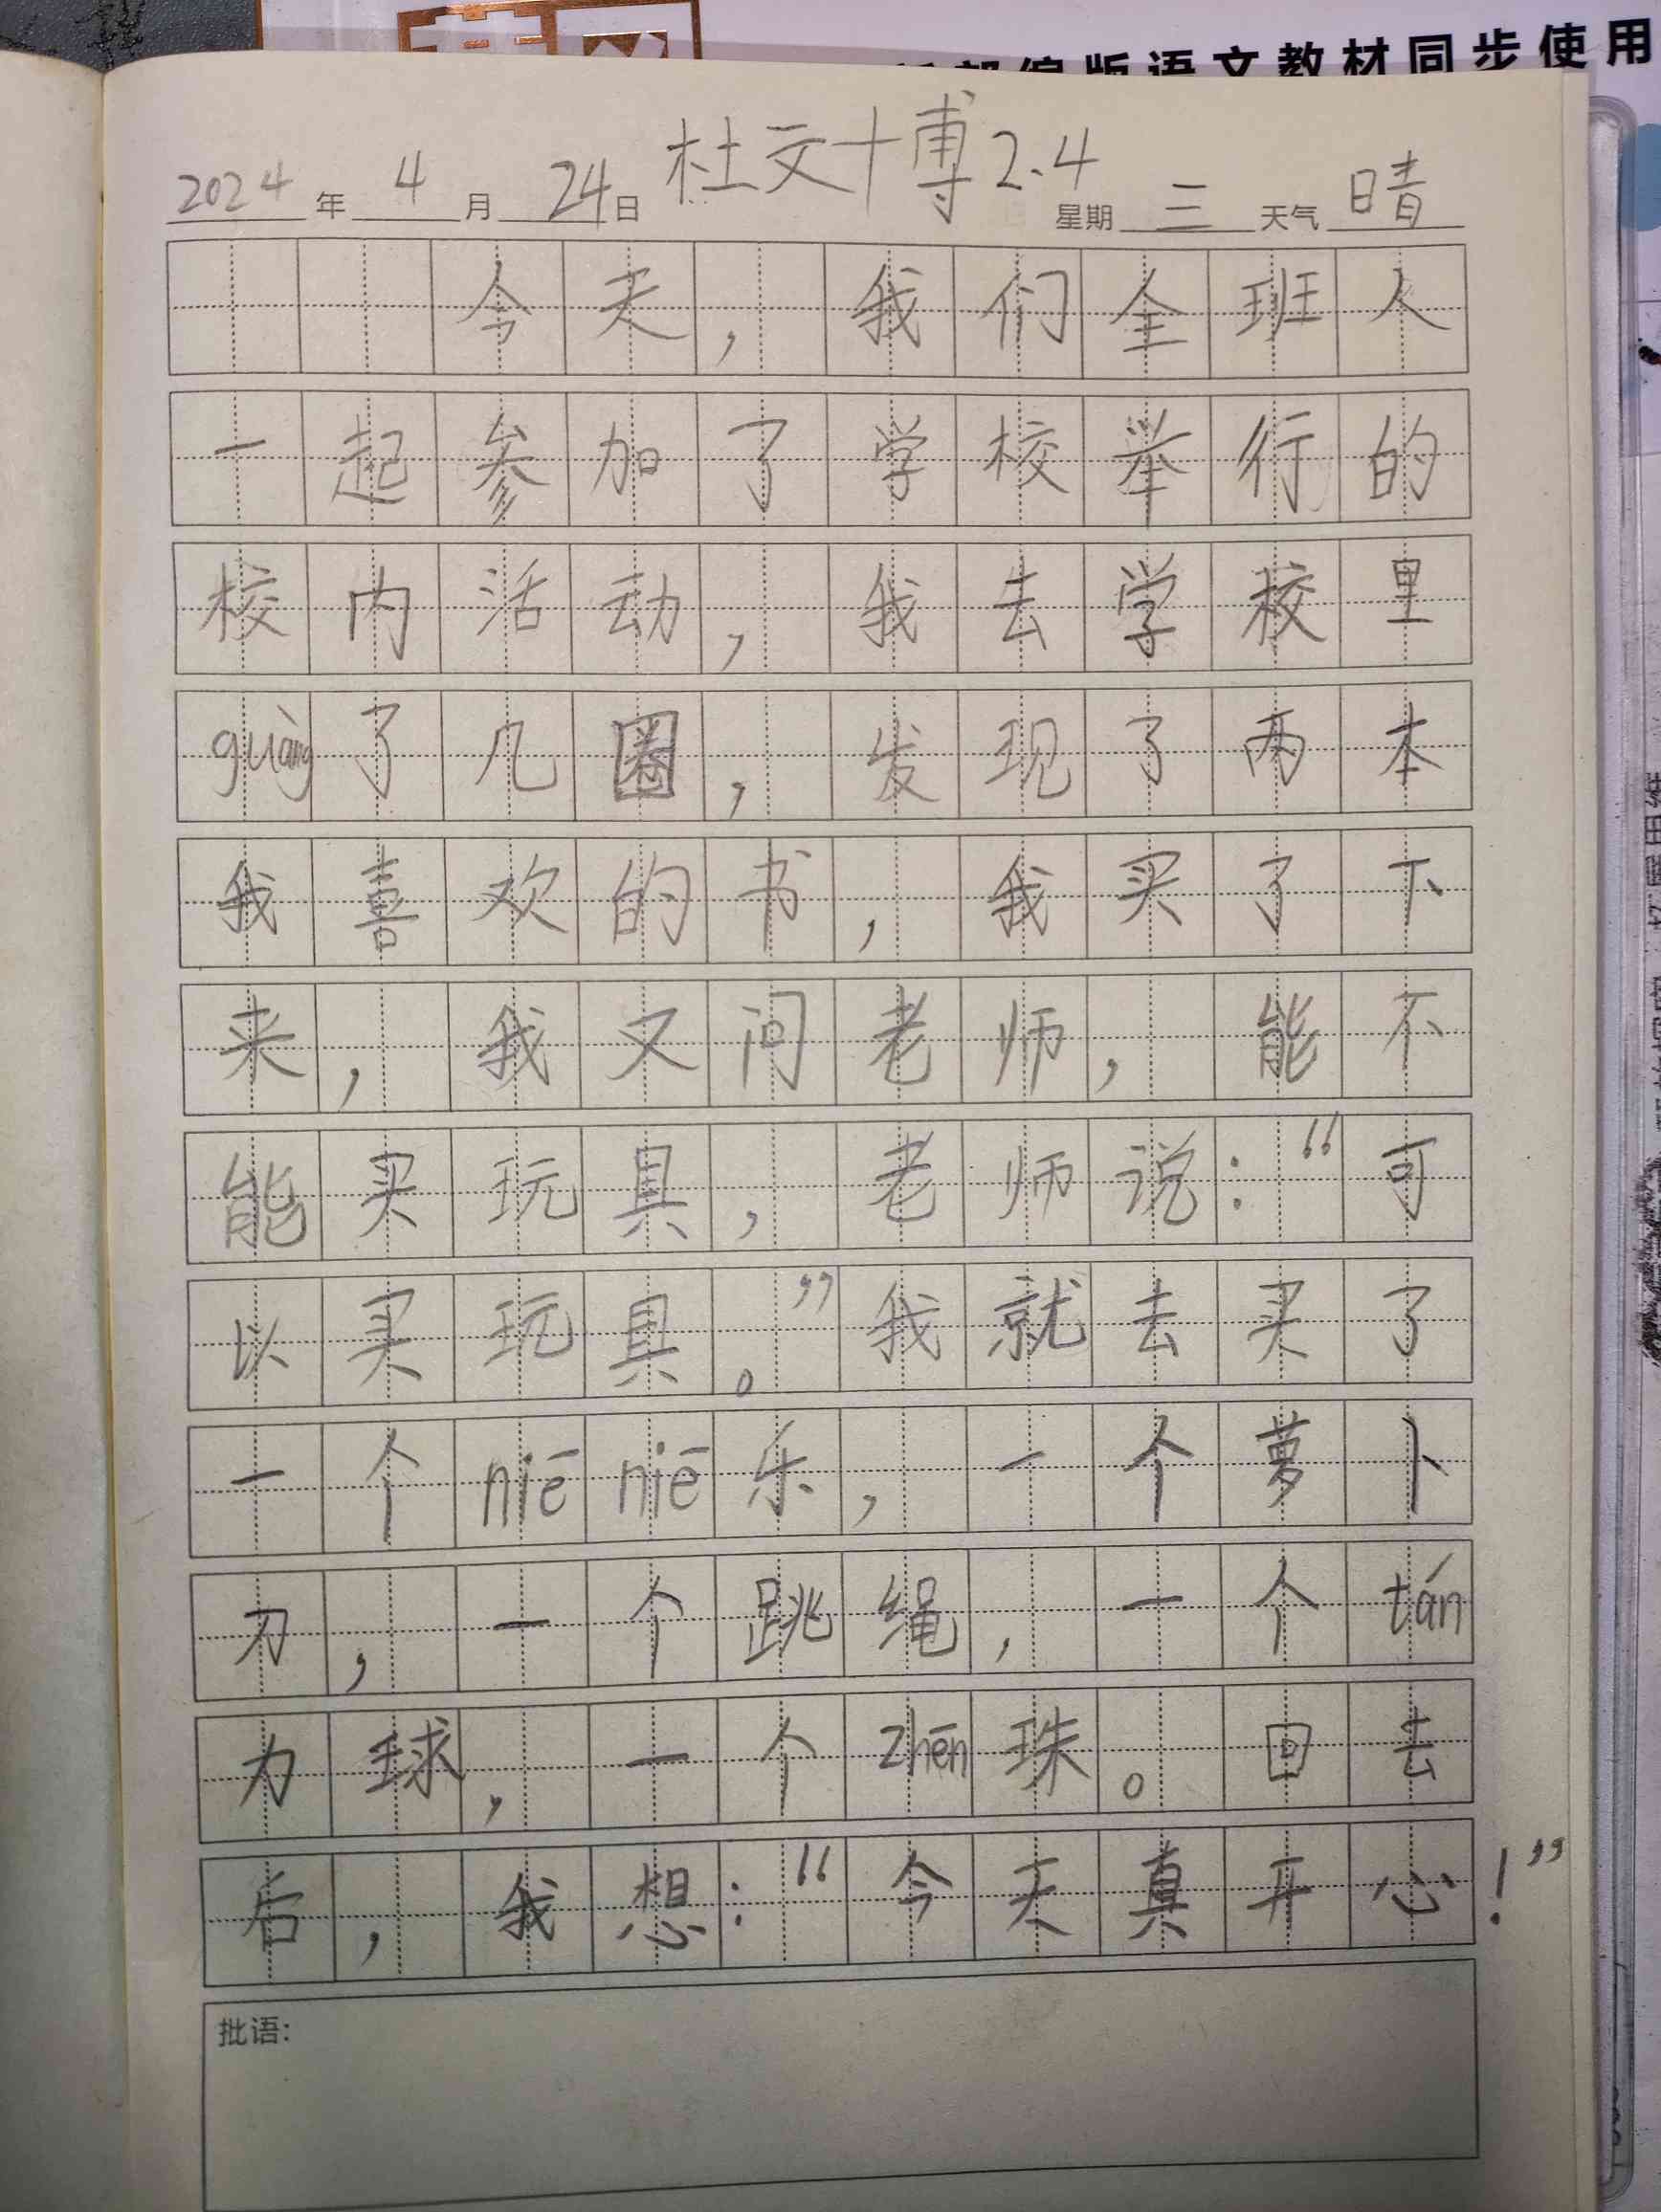 版语文教材同步使用
2024年4月24日 杜文博 2.4 星期三 天气晴
今天，我们全班人
一起参加了学校举行的
校内活动，我去学校里
guàng了几圈，发现了两本
我喜欢的书，我买了下
来，我又问老师，能不
能买玩具，老师说：“可
以买玩具。”我就去买了
一个niēniē乐，一个萝卜
刀，一个跳绳，一个tán
力球，一个zhēn珠。回去
后，我想：“今天真开心！”
批语：